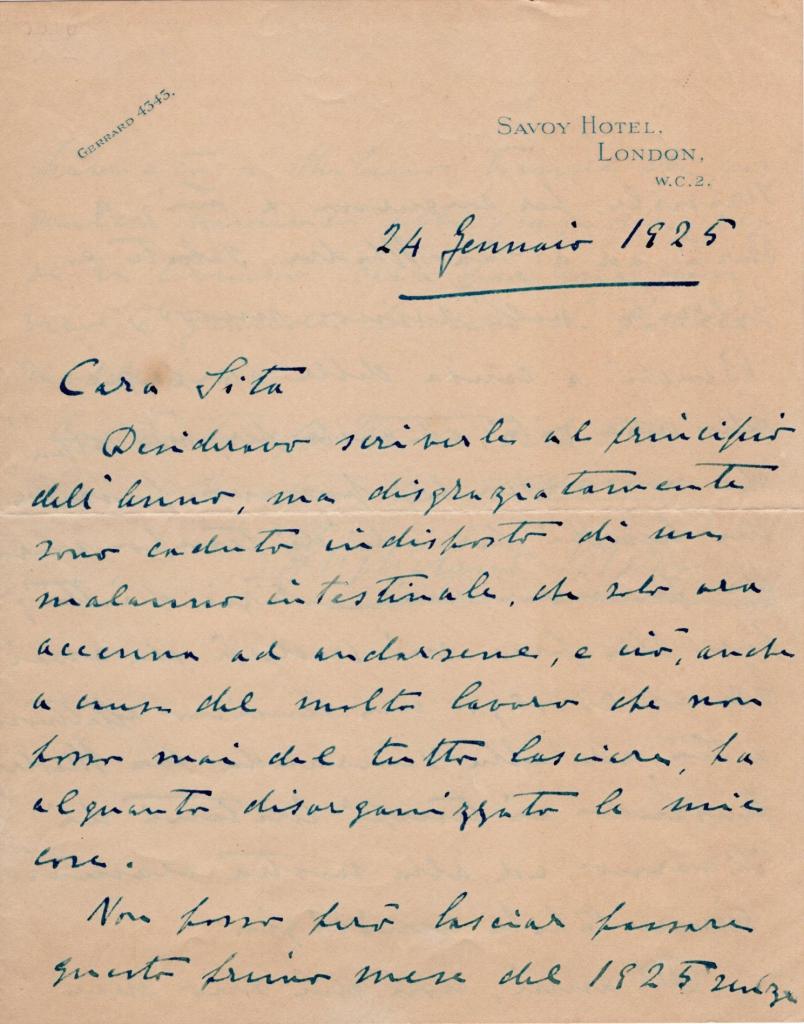 GERRARD 4343.
SAVOY HOTEL.
LONDON,
W.C.2.
24 Gennaio 1925
Cara Sita
Desideravo scriverle al principio
dell'anno, ma disgraziatamente
sono caduto indisposto di un
malanno intestinale, che solo ora
accenna ad andarsene, e ciò, anche
a causa del molto lavoro che non
posso mai del tutto lasciare, ha
alquanto disorganizzato le mie
cose.
Non posso però lasciar passare
questo primo mese del 1925 senza